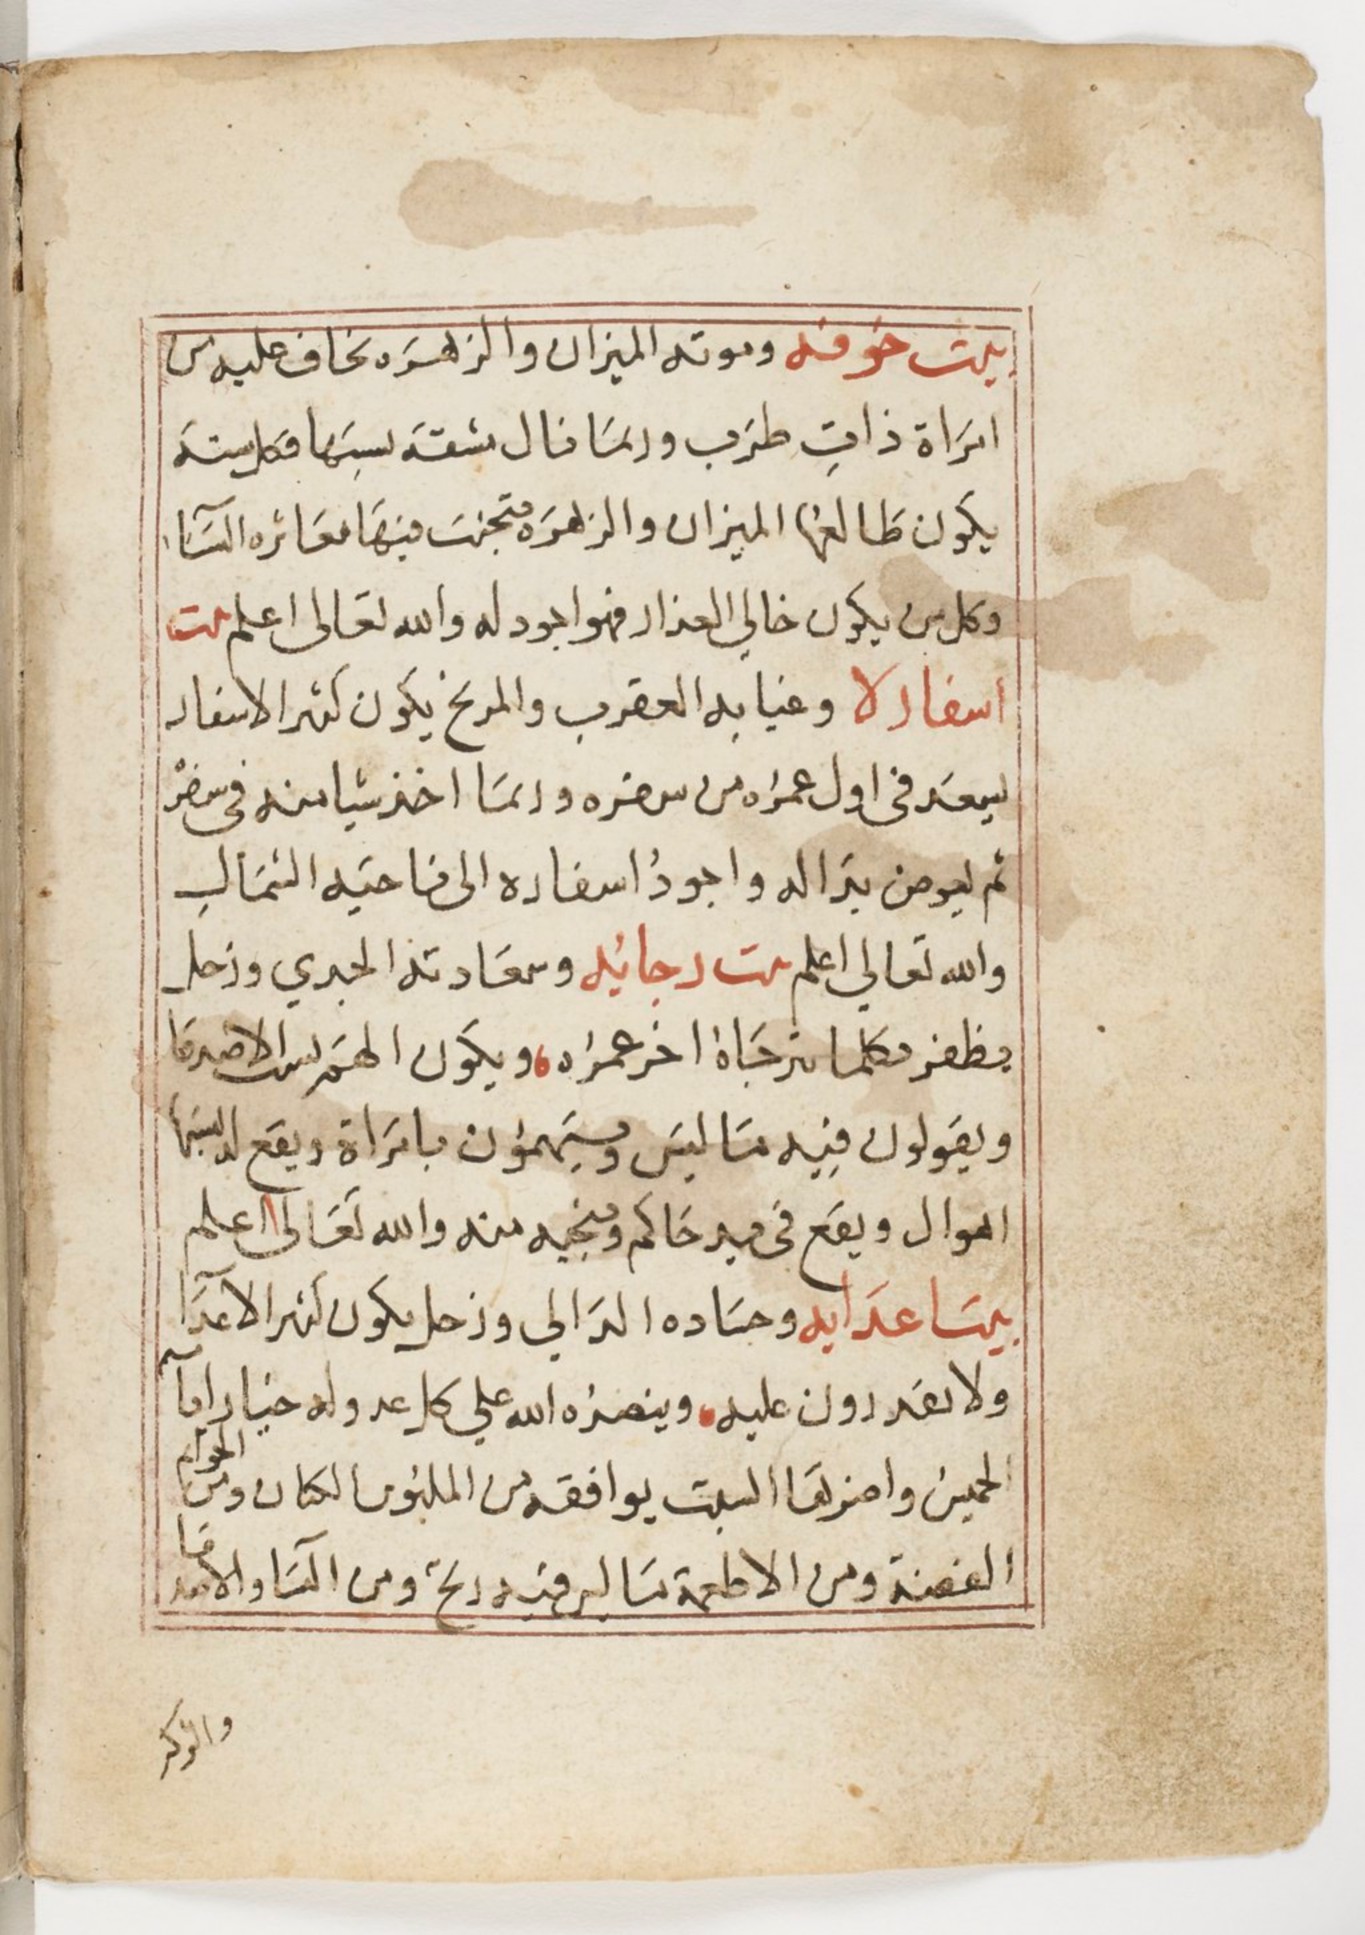 بيت خوفه وموته الميزان والزهره يخاف عليه من
امراة ذات طرب وربما نال مشقة بسببها وكل سنة
يكون طالعها الميزان والزهره يتجنب فيها معاشره النساء
وكل من يكون خالي العذار فهو اجود له والله تعالى اعلم بيت
اسفاره وغيابه العقرب والمريخ يكون كثير الاسفار
يسعد في اول عمره من سفره وربما اخذ شيا منه في سفره
ثم يعوض بداله واجود اسفاره الى ناحيه الشمال
والله تعالي اعلم بيت رجائه وسعادته الجدي وزحل
يظفر بكلما ترجاه اخر عمره ويكون الهم بين الاصدقا
ويقولون فيه ما ليس ويتهمون بامراة ويقع له بسببها
اهوال ويقع في يد حاكم وينجيه منه والله تعالى اعلم
بيت اعدايه وحساده الدالي وزحل يكون كثير الاعدا
ولا يقدرون عليه وينصره الله علي كل عدو له خيار ايامه
الخميس واضر لقا السبت يوافقه من الملبوس الكتان ومن الخواتم
الفضة ومن الاطعمة ما ليس فيه ريح ومن النسا والاصدقا
والذكر